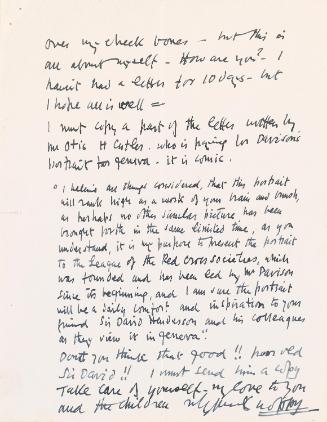 over my cheek bones - but this is
all about myself - How are you? - I
havn't had a letter for 10 days - but
I hope all is well =
I must copy a part of the letter written by
Mr Otis H Cutler. who is paying for Davison's
portrait for Geneva - it is comic.
" I believe all things considered, that this portrait
will rank high as a work of your brain and brush,
as perhaps no other similar picture has been
brought forth in the same limited time, as you
understand, it is my purpose to present the portrait
to the League of the Red Cross societies, which
was founded and has been led by Mr Davison
since its beginning, and I am sure the portrait
will be a daily comfort and inspiration to your
friend Sir David Henderson and his colleagues
as they view it in Geneva!
Don't you think that good!! poor old
Sir David!! I must send him a copy
Take care of yourself - my love to you
and the children